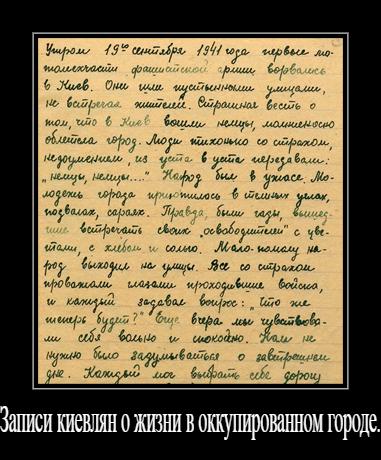 Утром 19го сентября 1941 года первые мо-
томехчасти фашистской армии ворвались
в Киев. Они шли пустынными улицами,
не встречая жителей. Страшная весть о
том, что в Киев вошли немцы, молниеносно
облетела город. Люди тихонько со страхом,
недоумением, из уста в уста передавали:
„немцы, немцы...." Народ был в ужасе. Мо-
лодежь города приютилось в темных углах,
подвалах, сараях. Правда, были гады, вышед-
шие встречать своих „освободителей" с цве-
тами, с хлебом и солью. Мало-помалу на-
род выходил на улицы. Все со страхом
провожали глазами проходившие войска,
и каждый задавал вопрос: „Что же
теперь будет?" Еще вчера мы чувствова-
ли себя вольно и спокойно. Нам не
нужно было задумываться о завтрашнем
дне. Каждый мог выбрать себе дорогу
Записи киевлян о жизни в оккупированном городе.